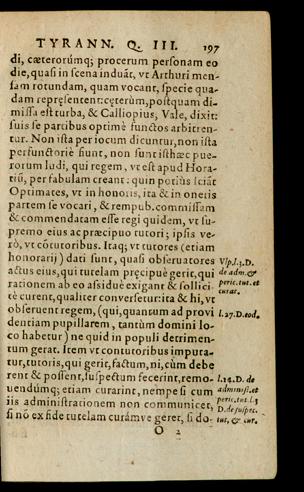 TYRANN. Q. III. 197
di, cæterorúmq; procerum personam eo
die, quasi in scena induāt, vt Arthuri men-
sam rotundam, quam vocant, specie qua-
dam repręsentent: cęterùm, postquam di-
missa est turba, & Calliopius, Vale, dixit:
suis se partibus optimè functos arbitren-
tur. Non ista per iocum dicuntur, non ista
perfunctoriè fiunt, non sunt isthæc pue-
rorum ludi, qui regem, vt est apud Hora-
tiū, per fabulam creant: quin potiùs sciāt
Optimates, vt in honoris, ita & in oneris
partem se vocari, & rempub. commissam
& commendatam esse regi quidem, vt su-
premo eius ac præcipuo tutori; ipsis ve-
rò, vt cōtutoribus. Itaq; vt tutores (etiam
honorarij) dati sunt, quasi obseruatores
actus eius, qui tutelam pręcipuè gerit, qui
rationem ab eo assiduè exigant & sollici-
tè curent, qualiter conuersetur: ita & hi, vt
obseruent regem, (qui, quantum ad provi
dentiam pupillarem, tantùm domini lo-
co habetur) ne quid in populi detrimen-
tum gerat. Item vt contutoribus imputa-
tur, tutoris, qui gerit, factum, ni, cùm debe
rent & possent, suspectum fecerint, remo-
uendúmq; etiam curarint, nempe si cum
iis administrationem non communicet,
si nō ex fide tutelam curámve gerat, si do-
O 2
Vlp. l. 3. D.
de adm. &
peric. tut. et
curat.
l. 27. D. eod.
l. 14. D. de
administ. et
peric. tut. l. 3
D. de suspec.
tut, & cur.